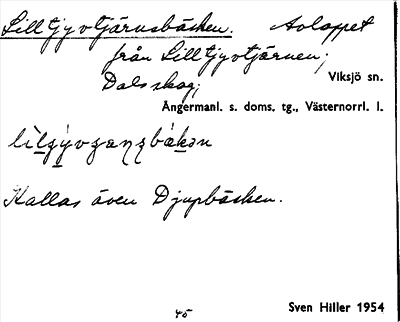 Lilltjyvtjärnsbäcken. Avloppet
från Lilltjyvtjärnen;
Dalsskog; Viksjö sn.
Ångermanl. s. doms. tg., Västernorrl. l.
Kallas även Djupbäcken.
45 Sven Hiller 1954